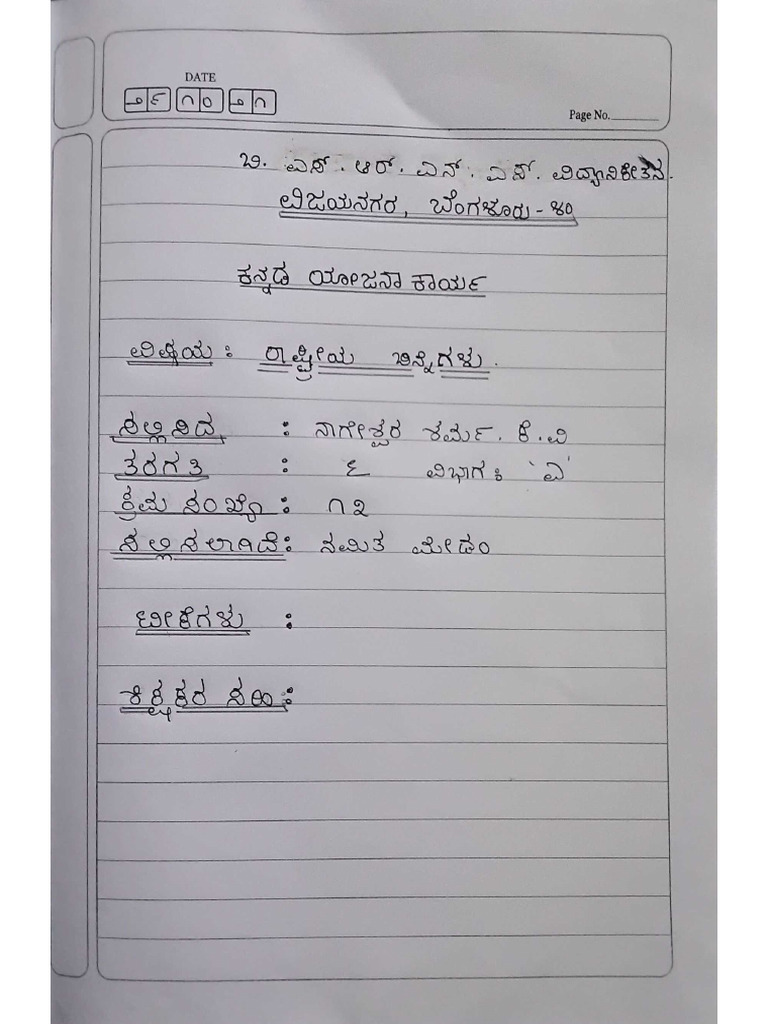 DATE
೨೯ ೧೦ ೨೧
Page No.
ಬಿ. ಎಸ್. ಆರ್. ಎನ್. ಎಸ್. ವಿದ್ಯಾನಿಕೇತನ.
ವಿಜಯನಗರ, ಬೆಂಗಳೂರು - ೪೦
ಕನ್ನಡ ಯೋಜನಾ ಕಾರ್ಯ
ವಿಷಯ : ರಾಷ್ಟ್ರೀಯ ಚಿನ್ನೆಗಳು.
ಸಲ್ಲಿಸಿದ : ನಾಗೇಶ್ವರ ಶರ್ಮ. ಕೆ. ವಿ
ತರಗತಿ : ೬ ವಿಭಾಗ : 'ಎ'
ಕ್ರಮ ಸಂಖ್ಯೆ : ೧೨
ಸಲ್ಲಿಸಲಾಗಿದೆ : ನಮಿತ ಮೇಡಂ
ಟೀಕೆಗಳು :
ಶಿಕ್ಷಕರ ಸಹಿ :